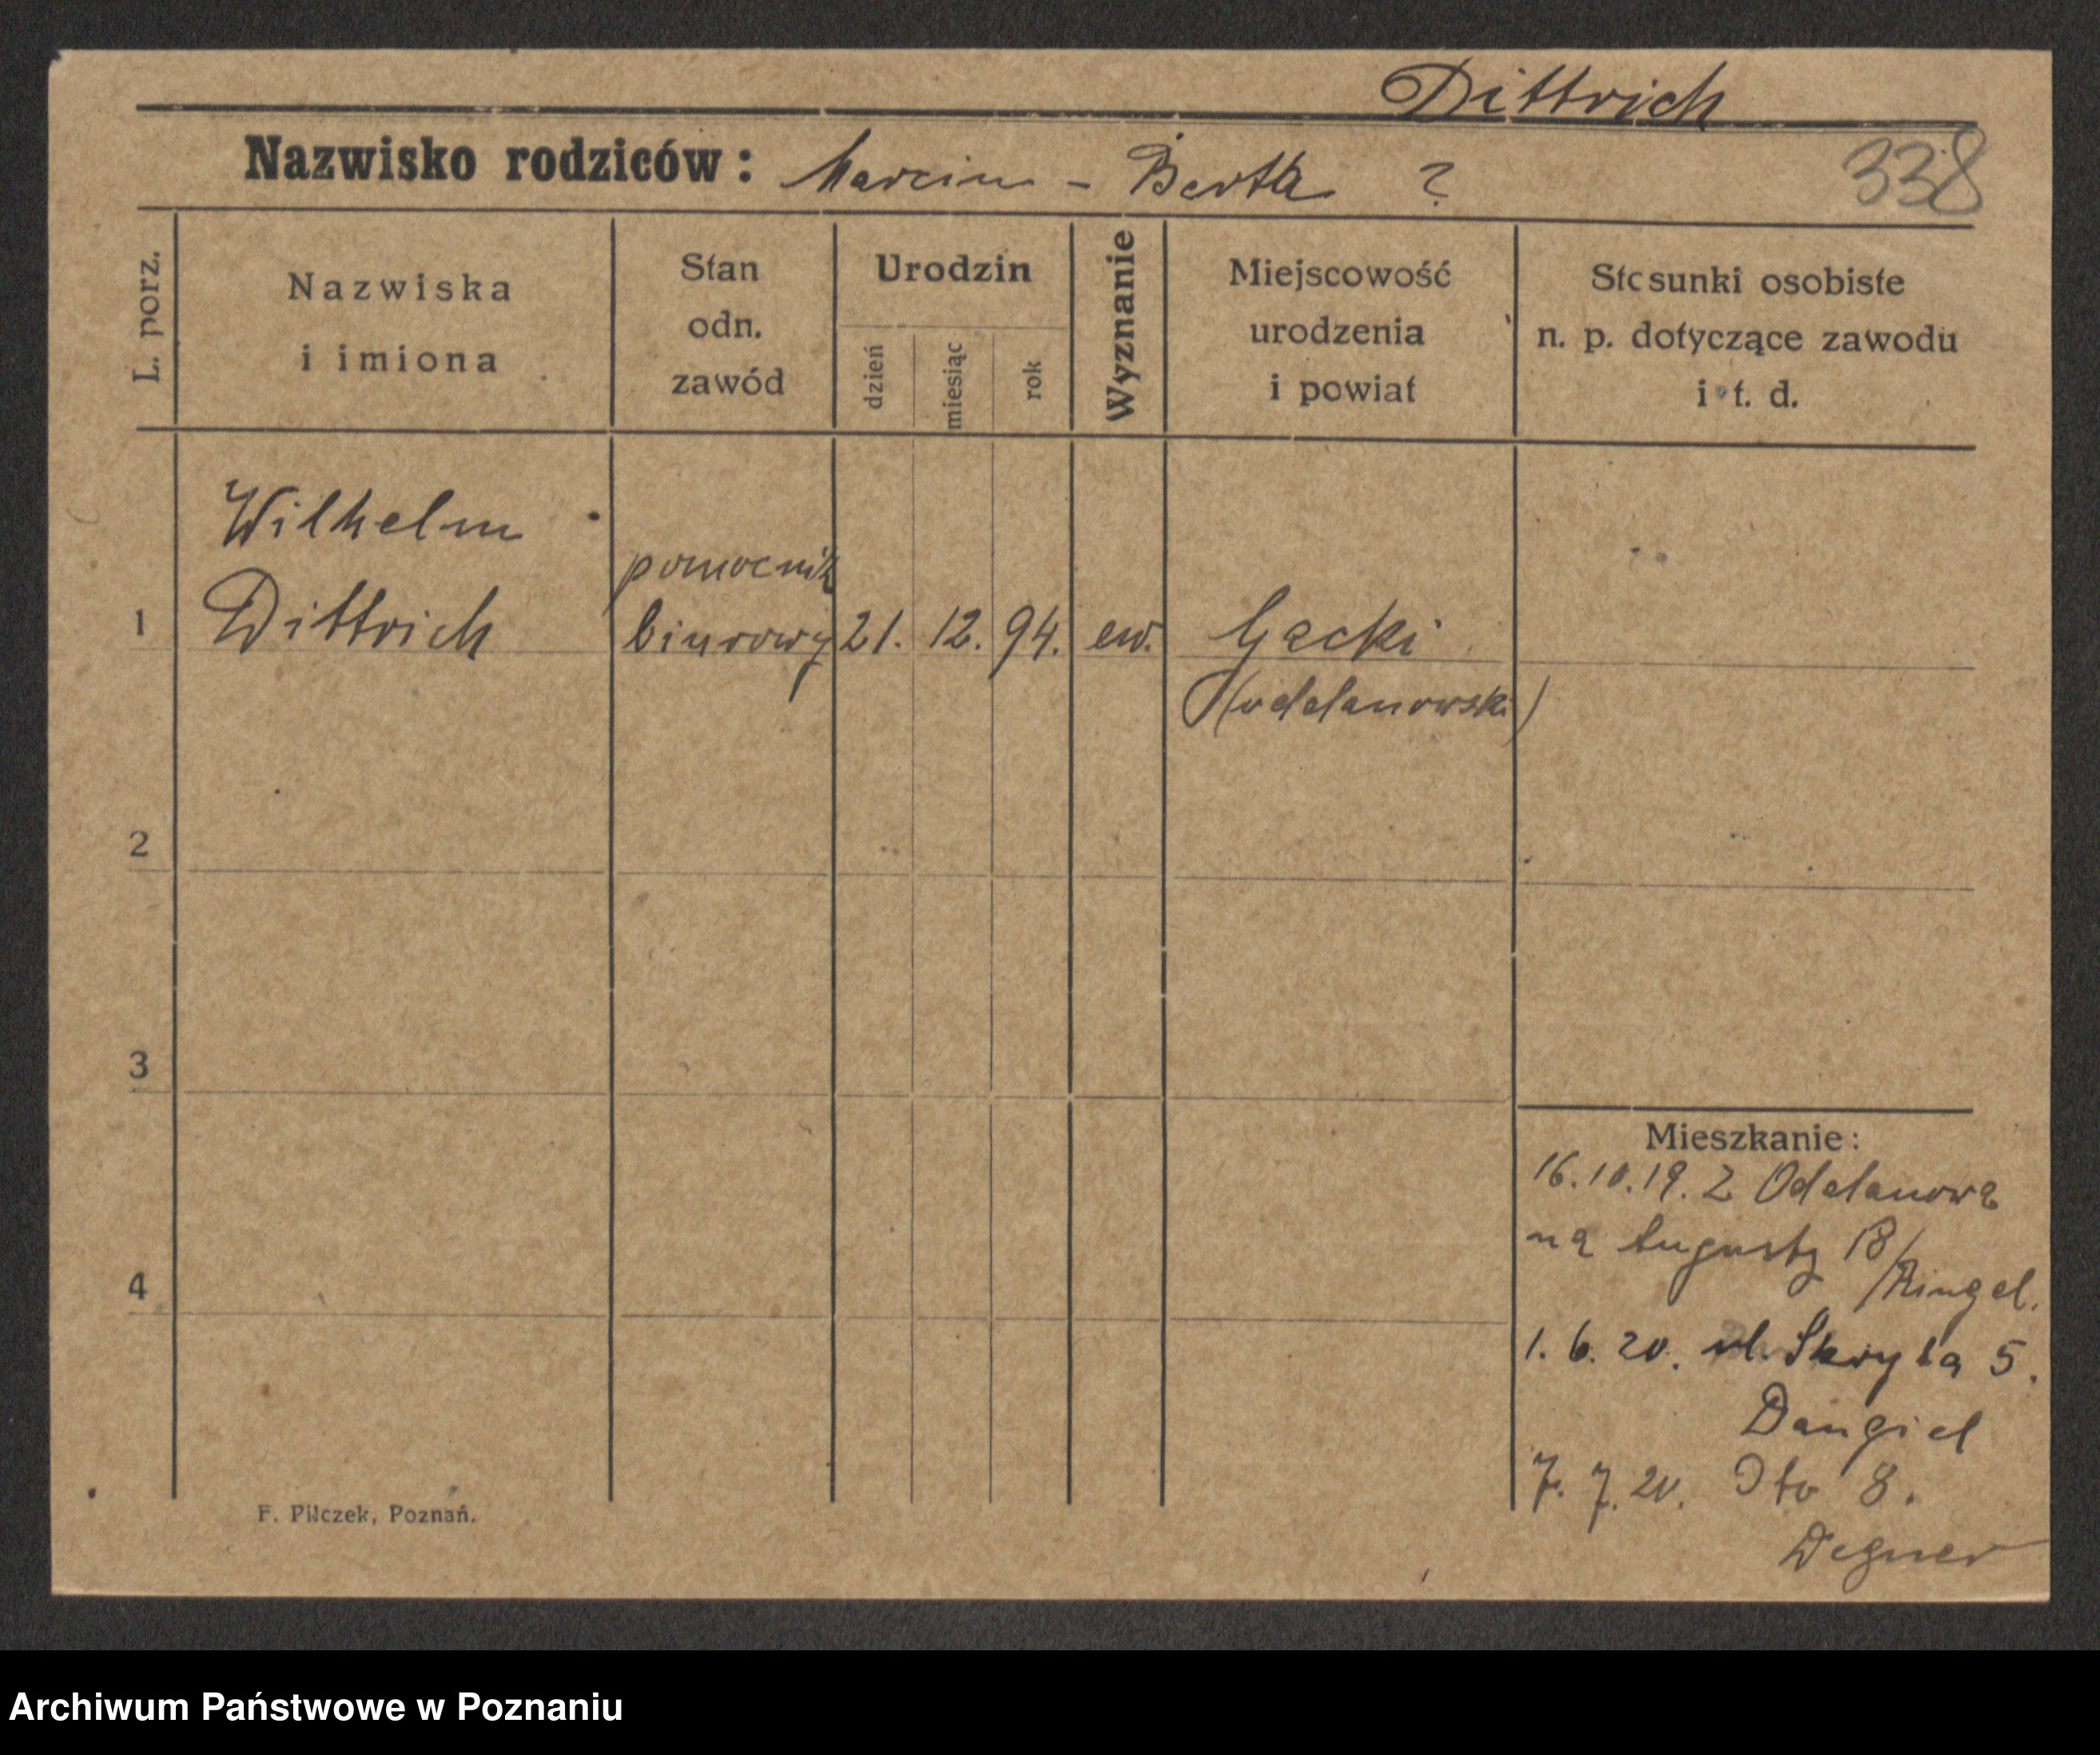 Dittrich
Nazwisko rodziców: Marcin - Berta ?
338
L. porz.
Nazwiska
i imiona
Stan
odn.
zawód
Urodzin
dzień
miesiąc
rok
Wyznanie
Miejscowość
urodzenia
i powiat
Stosunki osobiste
n. p. dotyczące zawodu
i t. d.
Wilhelm
Dittrich
pomocnik
biurowy
1
21. 12. 94. ew.
Gącki
(odolanowski)
2
3
4
Mieszkanie:
16.10.19. Z Odolanowa
na Augusty 18/
Ringel.
1. 6. 20. ul. Skryta 5.
Dangiel
7. 7. 20. 8.
Degner
F. Pilczek, Poznań.
Archiwum Państwowe w Poznaniu